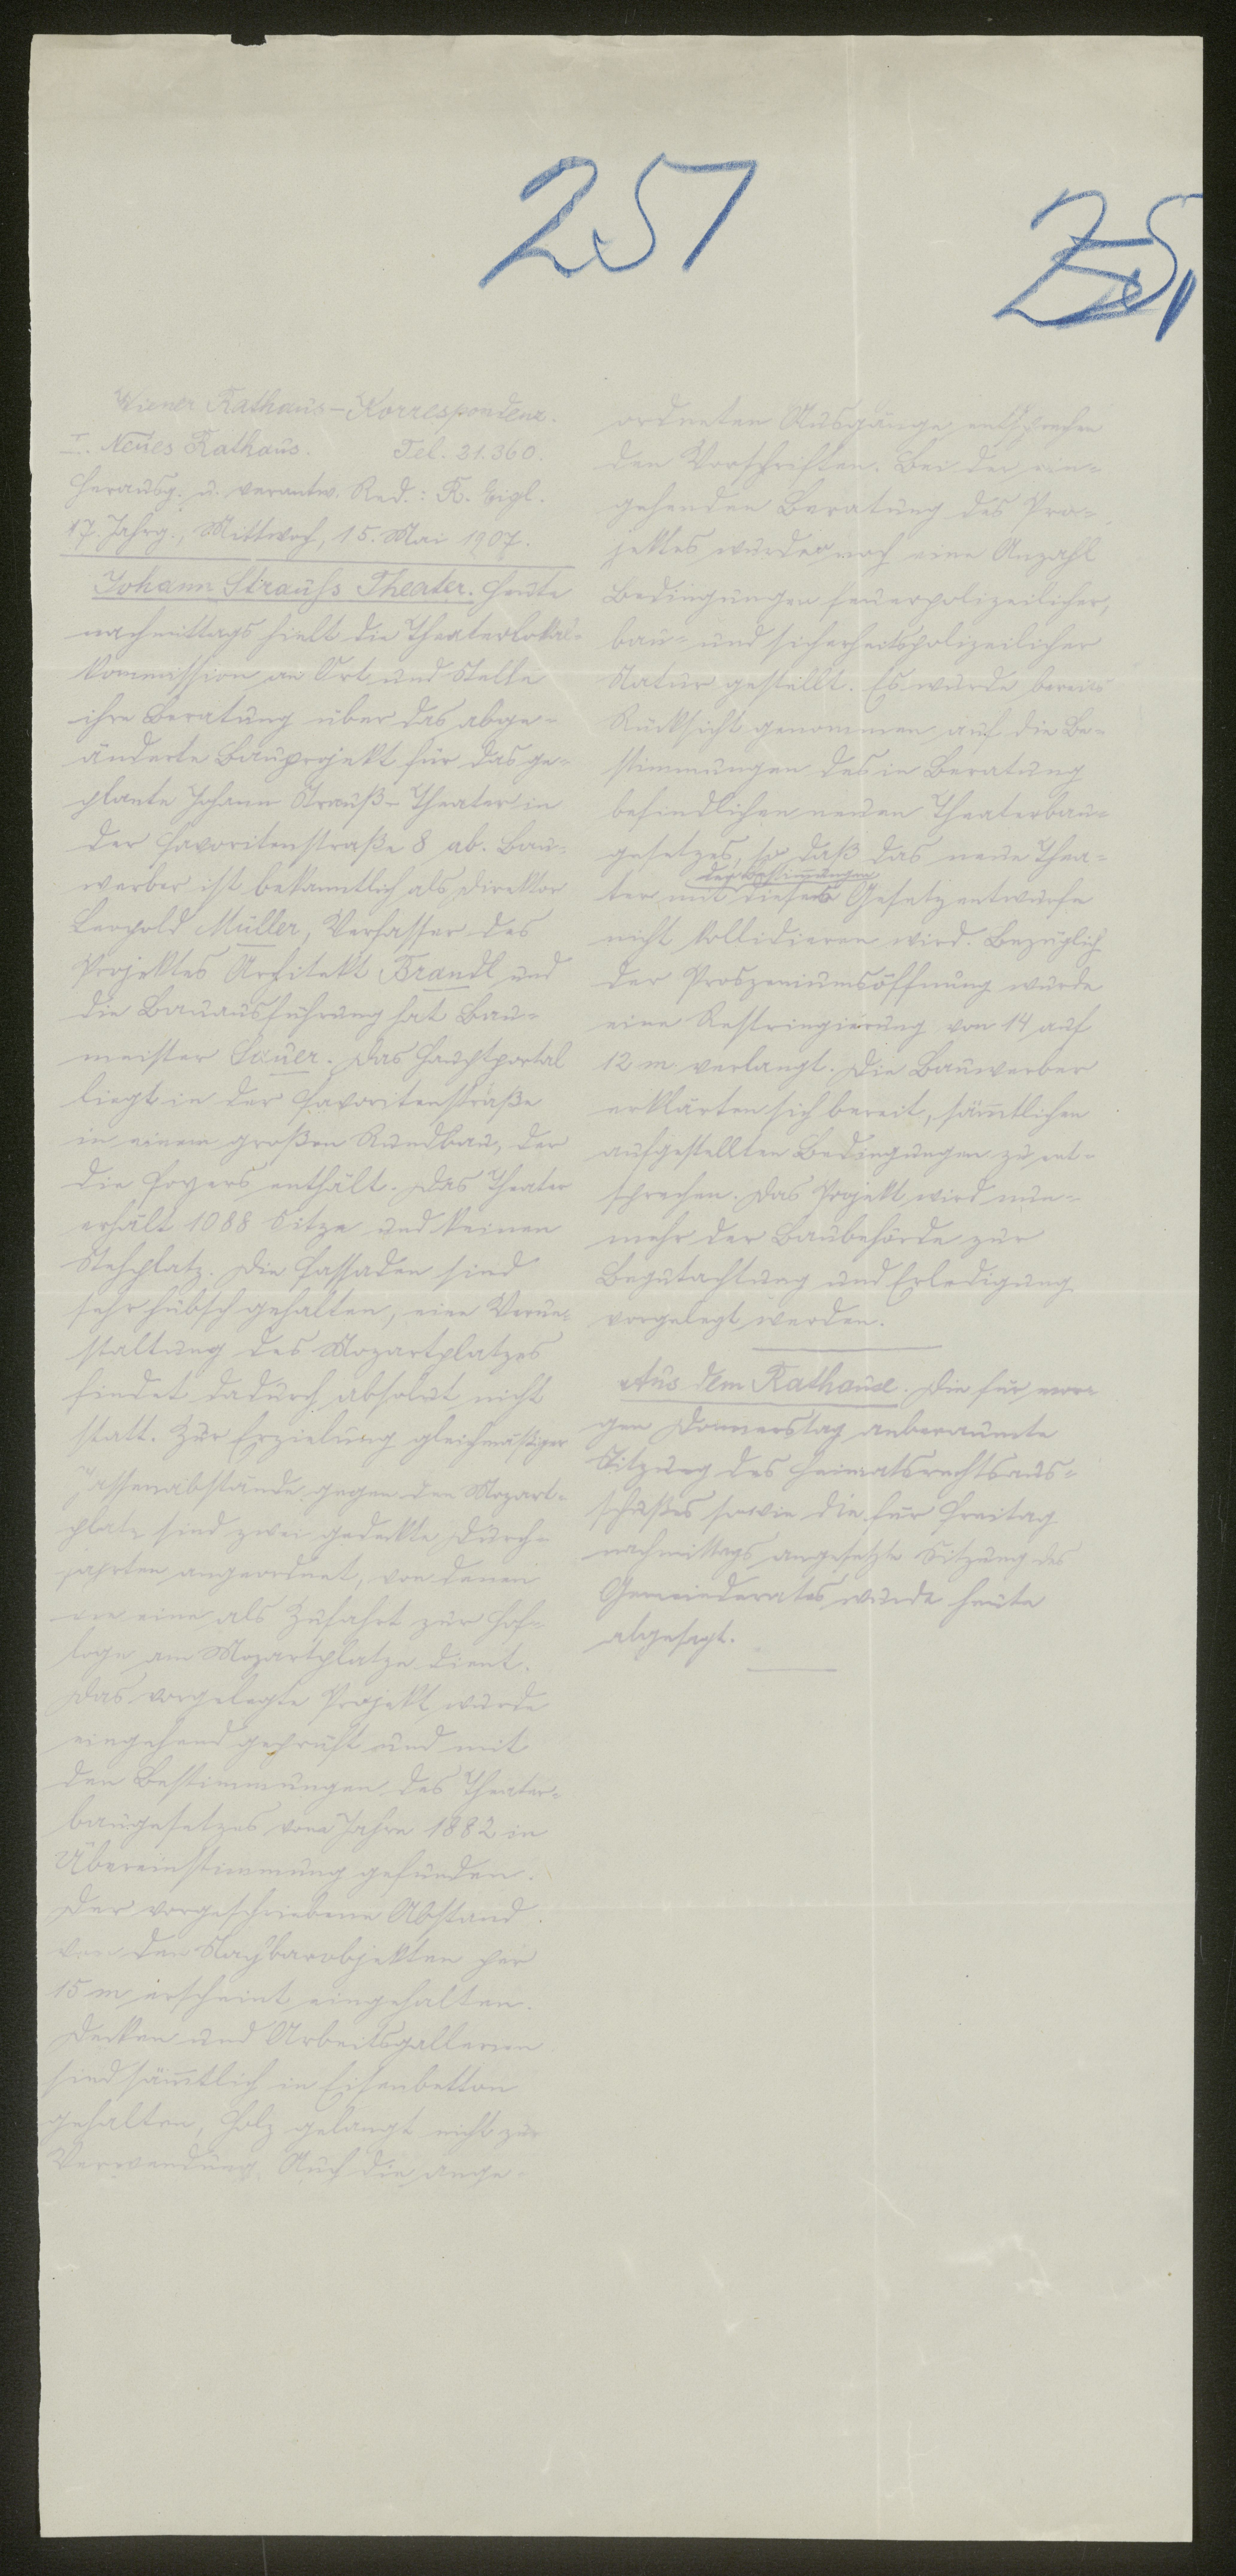 251
251
Wiener Rathaus-Korrespondenz.
I. Neues Rathaus. Tel. 31.360.
Herausg. u. verantw. Red.: R. Eigl.
17. Jahrg., Mittwoch, 15. Mai 1907.
Johann Strauß Theater. Heute
nachmittags hielt die Theaterlokal-
kommission an Ort und Stelle
ihre Beratung über das abge-
änderte Bauprojekt für das ge-
plante Johann Strauß-Theater in
der Favoritenstraße 8 ab. Bau-
werber ist bekanntlich als Direktor
Leopold Müller, Verfasser des
Projektes Architekt Brandl und
die Bauausführung hat Bau-
meister Sauer. Das Hauptportal
liegt in der Favoritenstraße
in einem großen Rundbau, der
die Foyers enthält. Das Theater
erhält 1088 Sitze und keinen
Stehplatz. Die Fassaden sind
sehr hübsch gehalten, eine Verun-
staltung des Mozartplatzes
findet dadurch absolut nicht
statt. Zur Erzielung gleichmäßiger
Gassenabstände gegen den Mozart-
platz sind zwei gedeckte Durch-
fahrten angeordnet, von denen
die eine als Zufahrt zur Hof-
loge am Mozartplatze dient.
Das vorgelegte Projekt wurde
eingehend geprüft und mit
den Bestimmungen des Theater-
baugesetzes vom Jahre 1882 in
Übereinstimmung gefunden.
Der vorgeschriebene Abstand
von den Nachbarobjekten per
15 m erscheint eingehalten.
Decken und Arbeitsgallerien
sind sämmtlich in Eisenbetton
gehalten, Holz gelangt nicht zur
Verwendung. Auch die ange-
ordneten Ausgänge entsprechen
den Vorschriften. Bei der ein-
gehenden Beratung des Pro-
jektes wurde noch eine Anzahl
Bedingungen feuerpolizeilicher,
bau- und sicherheitspolizeilicher
Natur gestellt. Es wurde bereits
Rücksicht genommen auf die Be-
stimmungen des in Beratung
befindlichen neuen Theaterbau-
gesetzes, so daß das neue Thea-
den Bestimmungen
ter mit dieses Gesetzentwurfe
nicht kollidieren wird. Bezüglich
der Proszeniumsöffnung wurde
eine Restringierung von 14 auf
12 m verlangt. Die Bauwerber
erklärten sich bereit, sämmtlichen
aufgestellten Bedingungen zu ent-
sprechen. Das Projekt wird nun-
mehr der Baubehörde zur
Begutachtung und Erledigung
vorgelegt werden.
Aus dem Rathause. Die für mor-
gen Donnerstag anberaumte
Sitzung des Heimatsrechtsaus-
schußes sowie die für Freitag
nachmittags angesetzte Sitzung des
Gemeinderates wurde heute
abgesagt.